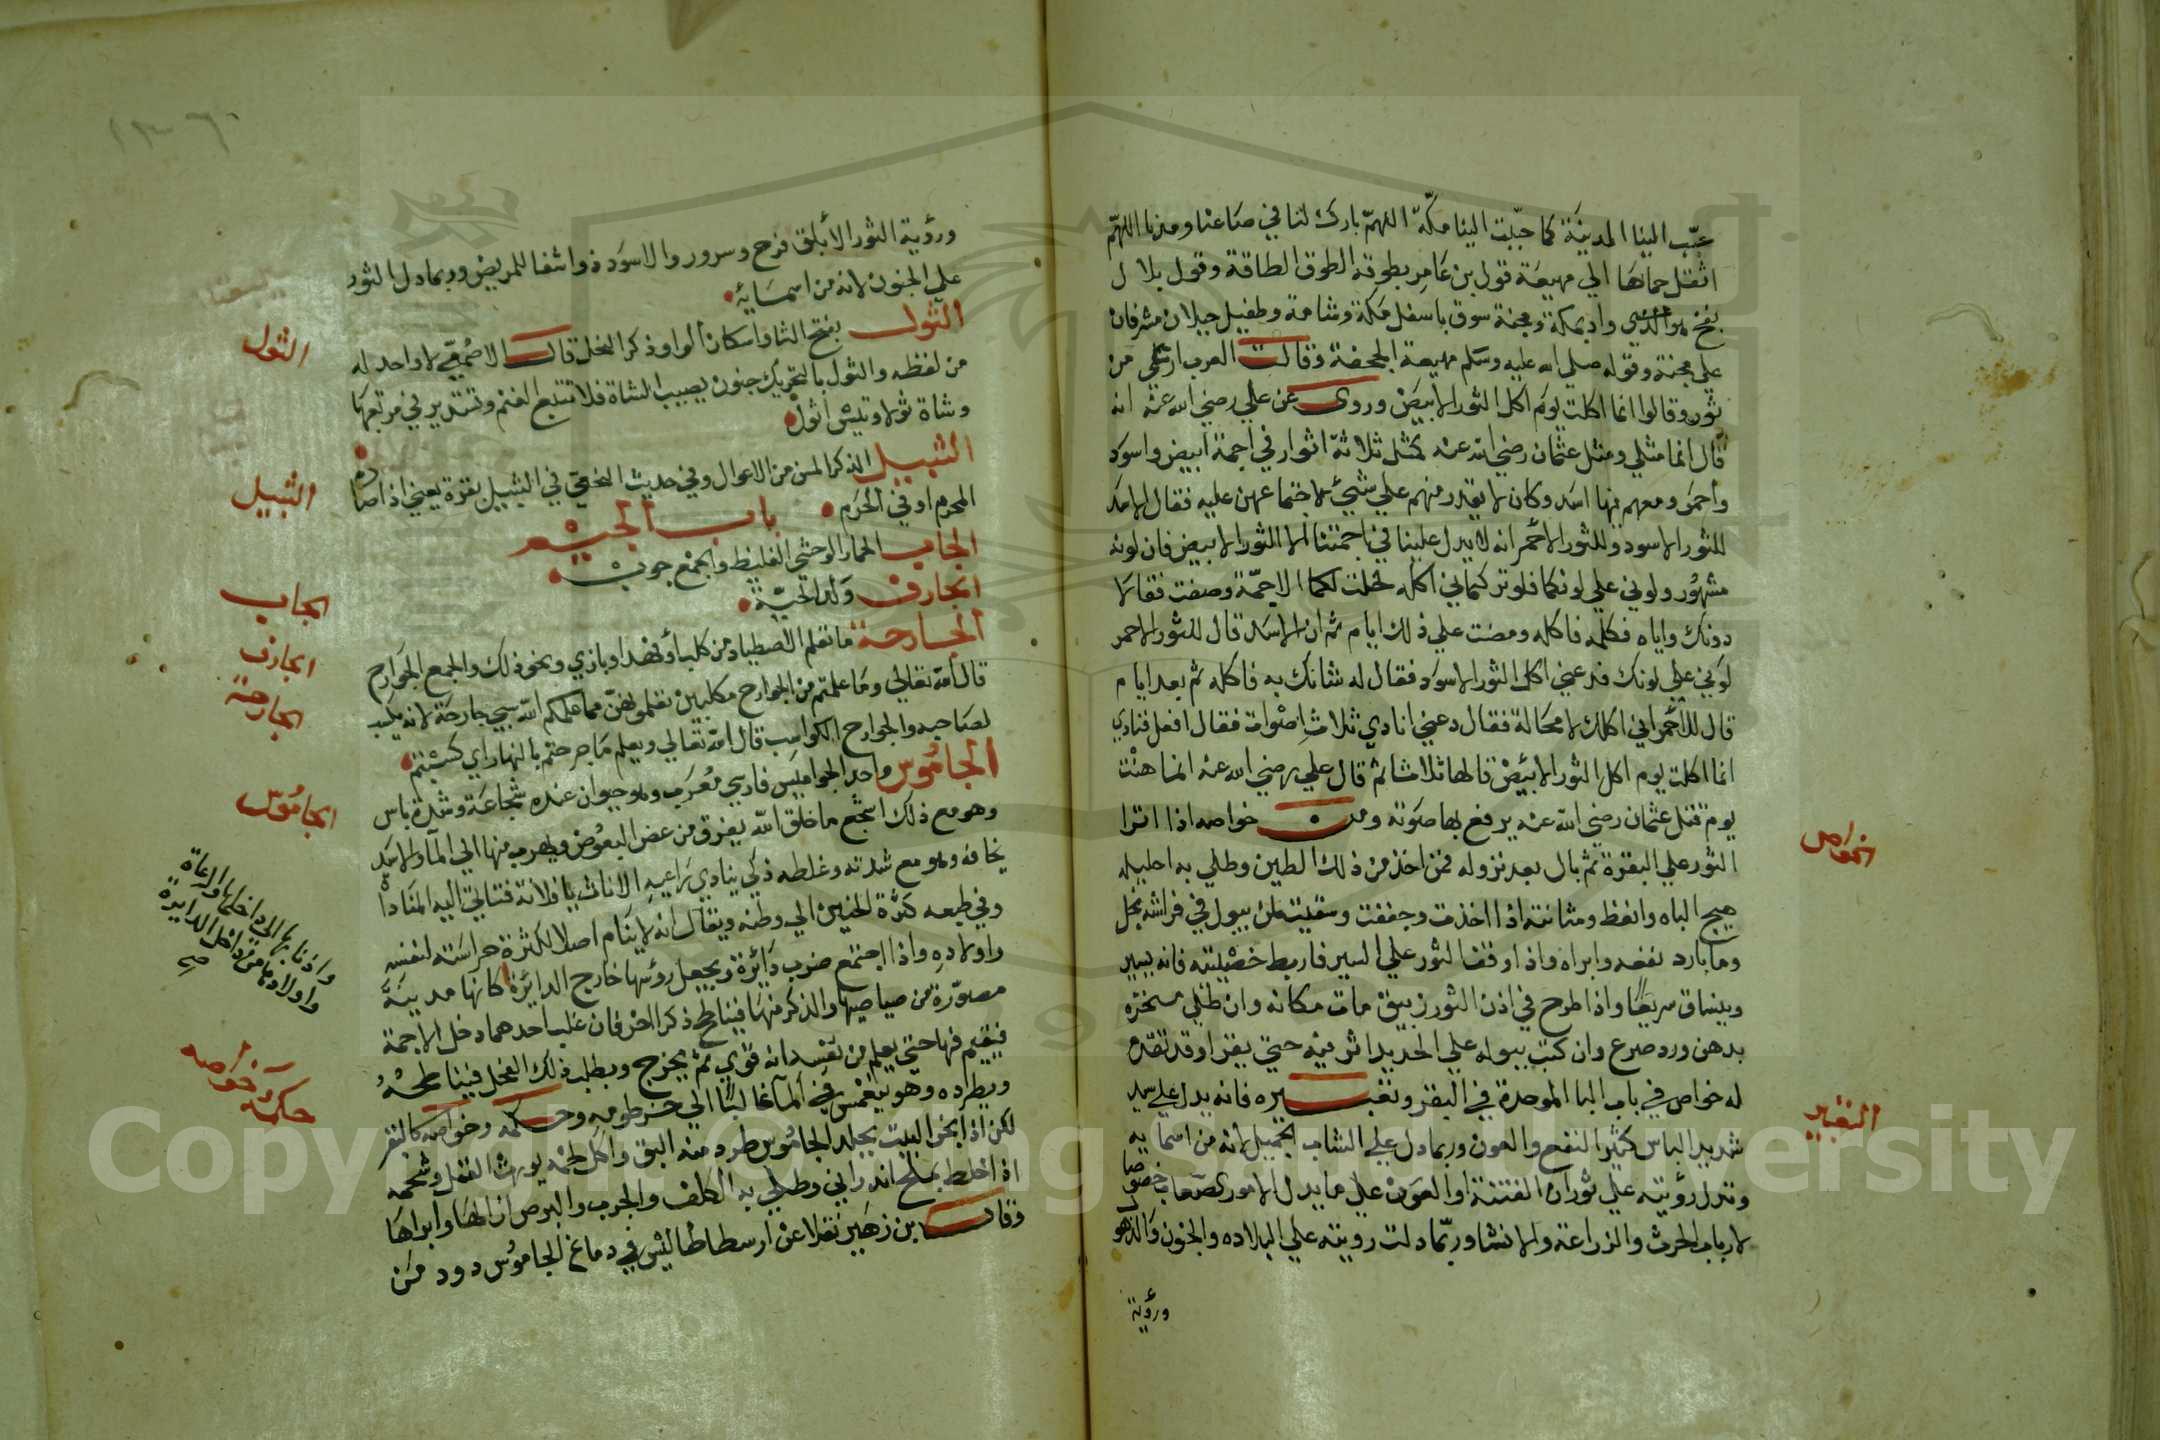 حبّب الينا المدينة كما حبّبت الينا مكّة اللهمّ بارك لنا في صاعنا ومدنا اللهمّ
انقل حماها الي مهيعة قول بن عامر بطوقه الطوق الطاقة وقول بلال
بفخ واد بمكة ومجنة سوق باسفل مكة وشامة وطفيل جبلان مشرفان
علي مجنة وقوله صلي الله عليه وسلم مهيعة الجحفة وقالت العرب ارعى من
ثور وقالوا انما اكلت يوم اكل الثور الابيض وروى عن علي رضي الله عنه انه
قال انما مثلي ومثل عثمان رضي الله عنه كمثل ثلاثة اثوار في اجمة ابيض واسود
واحمر ومعهم فيها اسد وكان لا يقدر منهم علي شيء لاجتماعهن عليه فقال الاسد
للثور الاسود وللثور الاحمر انه لا يدل علينا في اجمتنا الا الثور الابيض فان لونه
مشهور ولوني علي لونكما فلو تركتماني اكله خلت لكما الاجمّة وصفت فقالا
دونك واياه فكله فاكله ومضت علي ذلك ايام ثم ان الاسد قال للثور الاحمر
لوني علي لونك فدعني اكل الثور الاسود فقال له شانك به فاكله ثم بعد ايام
قال للاحمر اني اكلك لا محالة فقال دعني انادي ثلاث اصوات فقال افعل فنادي
انما اكلت يوم اكل الثور الابيض قالها ثلاثا ثم قال علي رضي الله عنه انما هنت
يوم قتل عثمان رضي الله عنه يرفع بها صوته ومن خواصه اذا انزا
الخواص
الثور علي البقرة ثم بال بعد نزوله فمن اخذ من ذلك الطين وطلي به احليله
هيج الباه وانعظ ومثانته اذا اخذت وجففت وسقيت لمن يبول في فراشه بخل
وما بارد نفعه وابراه واذا وقف الثور علي السير فاربط خصيتيه فانه يسير
وينساق سريعا واذا طرح في اذن الثور زيبق مات مكانه وان طلي منخره
بدهن ورد صرع وان كتب ببوله علي الحديد اثر فيه حتي يقرا وقد تقدم
له خواص في باب البا الموحدة في البقر وتعبيره فانه يدل علي سيد
التعبير
شديد الباس كثير النفع والعون وربما دل علي الشاب الجميل لانه من اسمايه
وتدل رؤيته علي ثوران الفتنة او العون علي ما يذل الامور الصعاب خصوصا
لارباب الحرث والزراعة والانشا وربّما دلت رويته علي البلاده والجنون والذهو
ورؤية
ورؤية الثور الابلق فرح وسرور والاسود ذوا شفا للمريض وربما دل الثور
علي الجنون لانه من اسمايه
الثول بفتح الثا واسكان الواو ذكر النحل قال الاصمعي لا واحد له
الثول
من لفظه والثول بالتحريك جنون يصيب الشاة فلا تتبع الغنم وتستدير في مرتعها
وشاة ثولا وتيس اثول
الثيتل الذكر المسن من الاوعال وفي حديث النخعي في الثيتل بقرة يعني اذا صاده
الثيتل
المحرم او في الحرم باب الجيم
الجاب الحمار الوحشي الغليظ والجمع جوب
الجاب
الجارف ولد الحيّة
الجارف
الجارحة ما تعلم الاصطياد من كلب او فهد او بازي ونحو ذلك والجمع الجوارح
الجارحة
قال الله تعالي وما علمتم من الجوارح مكلبين تعلمونهن مما علمكم الله سمي جارحة لانه يكسب
لصاحبه والجوارح الكواسب قال الله تعالي ويعلم ما جرحتم بالنهار اي كسبتم
الجاموس واحد الجواميس فارسي معرب وهو حيوان عنده شجاعة وشدة باس
الجاموس
وهو مع ذلك اشجع ما خلق الله يفرق من عض البعوض ويهرب منها الي الما والاسد
يخافه وهو مع شدته وغلظه ذكي ينادي راعيه الاناث يا فلانة فتاتي اليه المناداة
وفي طبعه كثرة الحنين الي وطنه ويقال انه لا ينام اصلا لكثرة حراسته لنفسه
واولاده واذا اجتمع ضرب دايرة ويجعل رؤسها خارج الدايرة كانها مدينة
واذنابها الي داخلها والرعاة
واولادها من داخل الدايرة
صح
مصوّرة من صياصيها والذكر منها يناطح ذكرا اخر فان غلب احدهما دخل الاجمة
فيقيم فيها حتي يعلم من نفسه انه قوي ثم يخرج ويطلب ذلك الفحل فيناطحه
ويطرده وهو ينغمس في الما غالبا الي خرطومه وحكمه وخواصه كالبقر
حكمه وخواصه
لكن اذا بخر البيت بجلد الجاموس طرد منه البق واكل لحمه يورث القمل وشحمه
اذا خلط بملح اندراني وطلي به الكلف والجرب والبرص ازالها وابراها
وقال بن زهير نقلا عن ارسطاطاليس في دماغ الجاموس دود من
Copyright © King Saud University